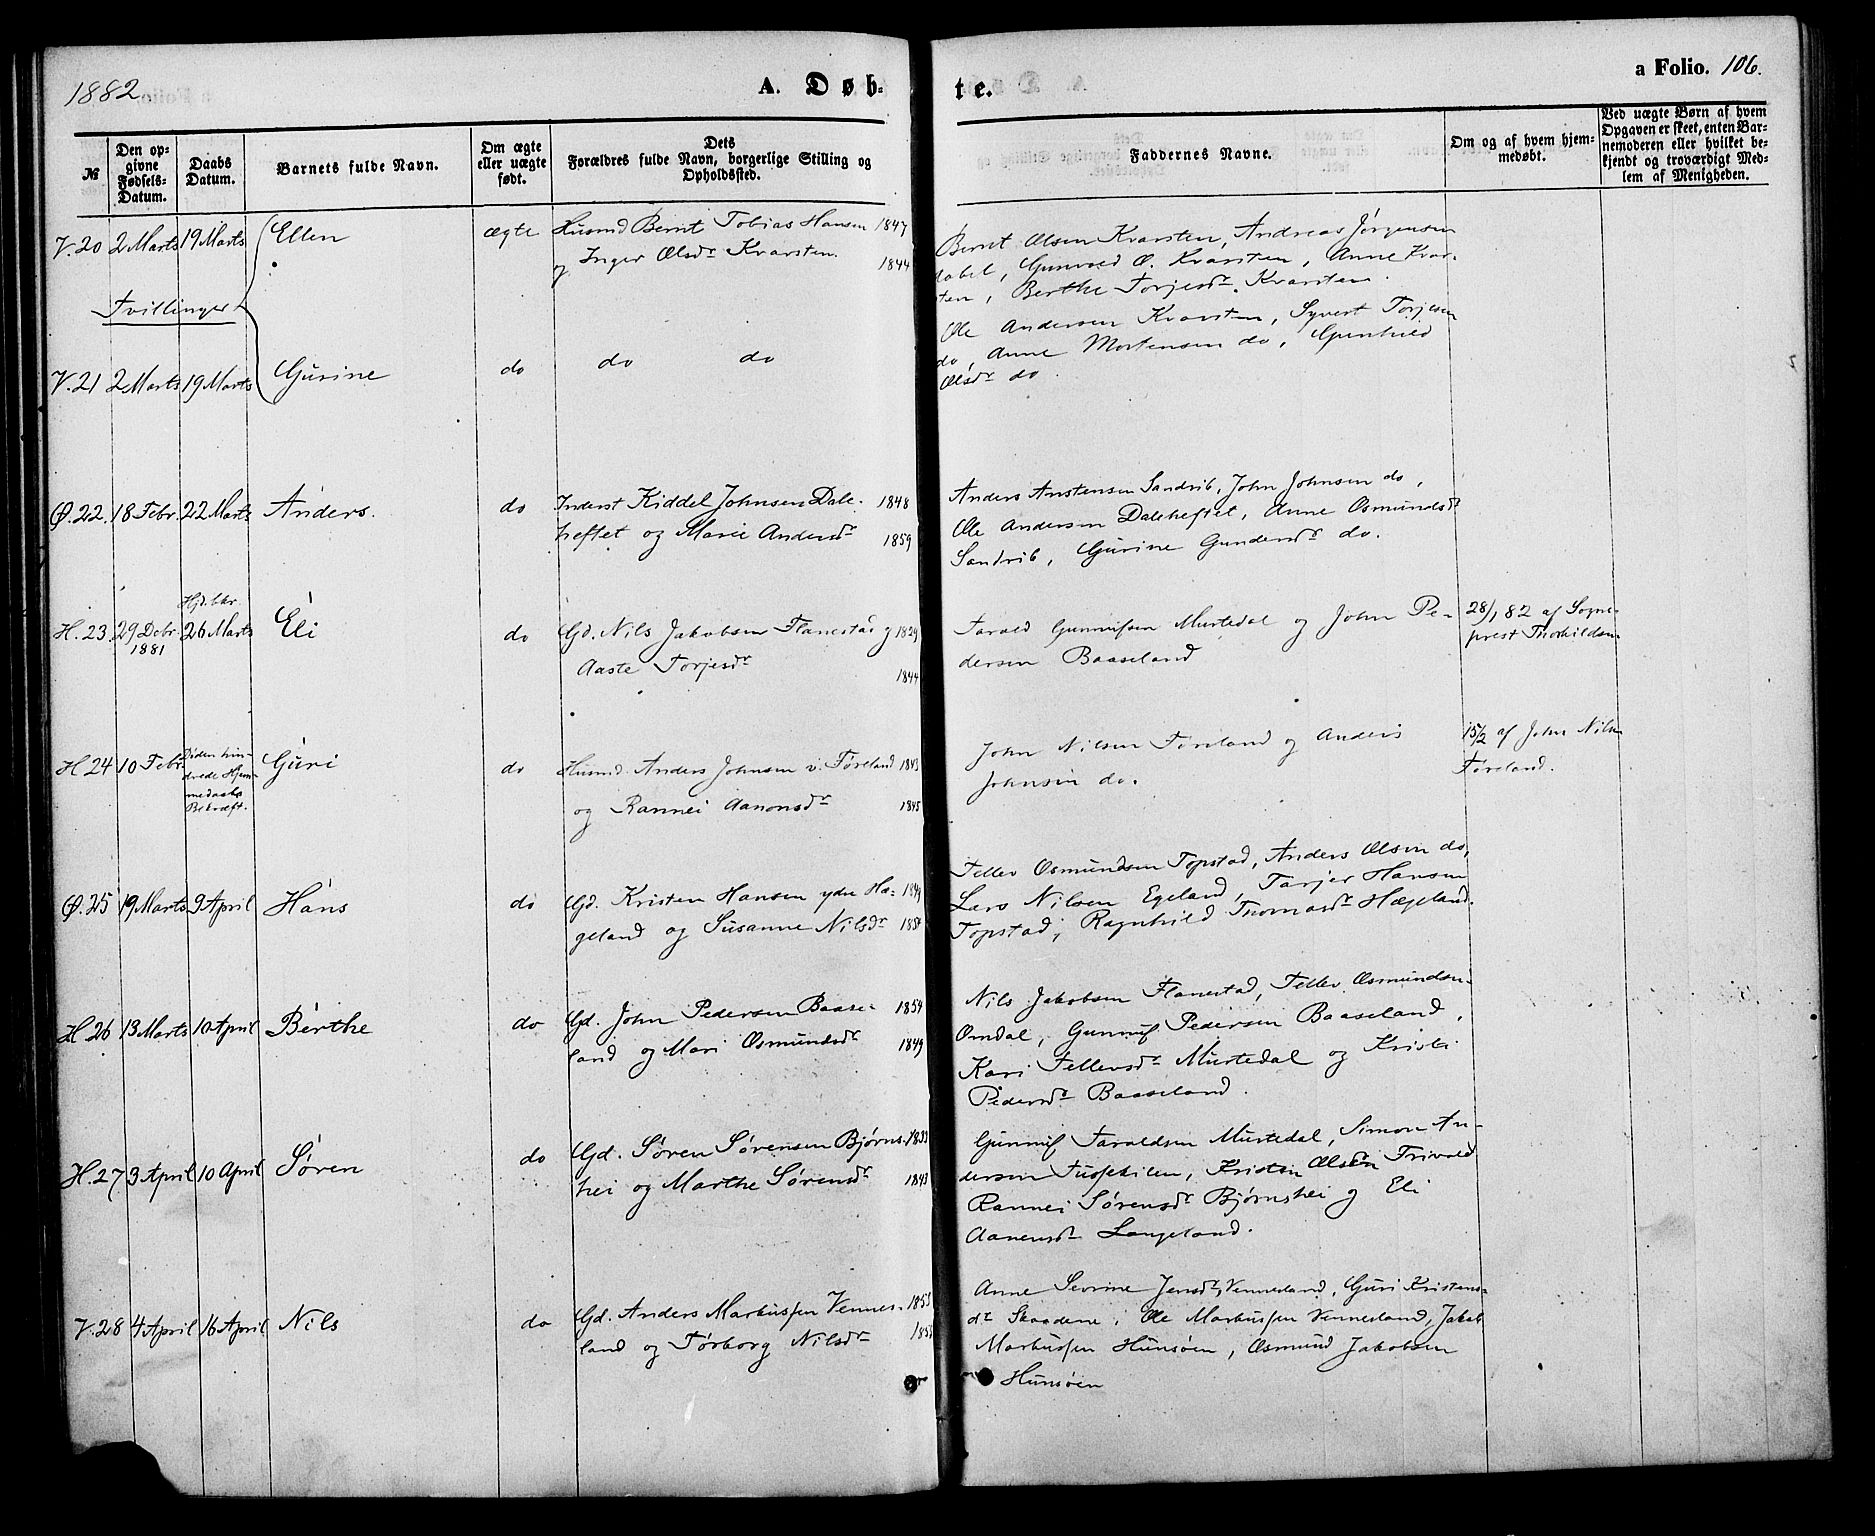 1882
A. Døb-
te.
a Folio. 106.
№
Den op-
givne
Fødsels-
Datum.
Daabs
Datum.
Barnets fulde Navn.
Om ægte
eller uægte
født.
Dets
Forældres fulde Navn, borgerlige Stilling og
Opholdssted.
Faddernes Navne.
Om og af hvem hjem-
medøbt.
Ved uægte Børn af hvem
Opgaven er skeet, enten Bar-
nemoderen eller hvilket be-
kjendt og troværdigt Med-
lem af Menigheden.
V.20 2 Marts 19 Marts Ellen ægte Husmd Bernt Tobias Hansen 1847
og Inger Olsdr Kvarsten. 1844
Bernt Olsen Kvarsten, Andreas Jørgensen
Gunvald O. Kvarsten, Anne Kvar-
sten, Berthe Torjesdr. Kvarsten.
Tvillinger
V.21 2 Marts 19 Marts Gurine do do do
Ole Andersen Kvarsten, Syvert Torjesen
do, Anne Mortensen do, Gunhild
Olsdr do.
Ø.22. 18 Febr. 22 Marts Anders. do Inderst Kiddel Johnsen Dale- 1848
heftet og Marie Andersdr 1859
Anders Anstensen Sandrib, John Johnsen do,
Ole Andersen Daleheftet, Anne Osmundsdr
Sandrib, Gurine Gundersdr do.
H.23. 29 Dcbr. 1881 Hjd. bkr. 26 Marts Eli do Gd. Nils Jakobsen Flanestad og 1829
Aaste Torjesdr 1844
Tarald Gunnufsen Murtedal og John Pe-
dersen Baaseland
28/1 82 af Sogne-
prest Thorkildsen
H.24 10 Febr. Døden hin-
drede Hjem-
medaabs
Bekræft. Guri do Husmd. Anders Johnsen v. Føreland 1843
og Rannei Aanonsdr 1845
John Nilsen Føreland og Anders
Johnsen do.
15/2 af John Nilsen
Føreland.
Ø.25 19 Marts 9 April Hans do Gd. Kristen Hansen ydre Hæ-
geland og Susanne Nilsdr
Tellev Osmundsen Topstad, Anders Olsen do,
Lars Nilsen Egeland, Tarjer Hansen
Topstad, Ragnhild Thomasdr Hægeland.
H.26 13 Marts 10 April Berthe do Gd. John Pedersen Baase- 1854
land og Mari Osmundsdr 1849
Nils Jakobsen Flanestad, Tellev Osmundsen
Omdal, Gunnuf Pedersen Baaseland,
Kari Tellevsdr Murtedal og Kristi
Pedersdr Baaseland.
H.27 3 April 10 April Søren do Gd. Søren Sørensen Bjørns- 1833
hei og Marthe Sørensdr 1843
Gunnuf Taraldsen Murtedal, Simon An-
dersen Kristen Olsen Trivold
Rannei Sørensdr Bjørnshei og Eli
Aanensdr Langeland.
V.28 4 April 16 April Nils do Gd. Anders Markussen Vennes-
land og Tørborg Nilsdr
Anne Severine Jensdr Vennesland, Guri Kristens-
dr Skaadene, Ole Markussen Vennesland, Jakob
Markussen Hunsøen, Osmund Jakobsen
Hunsøen